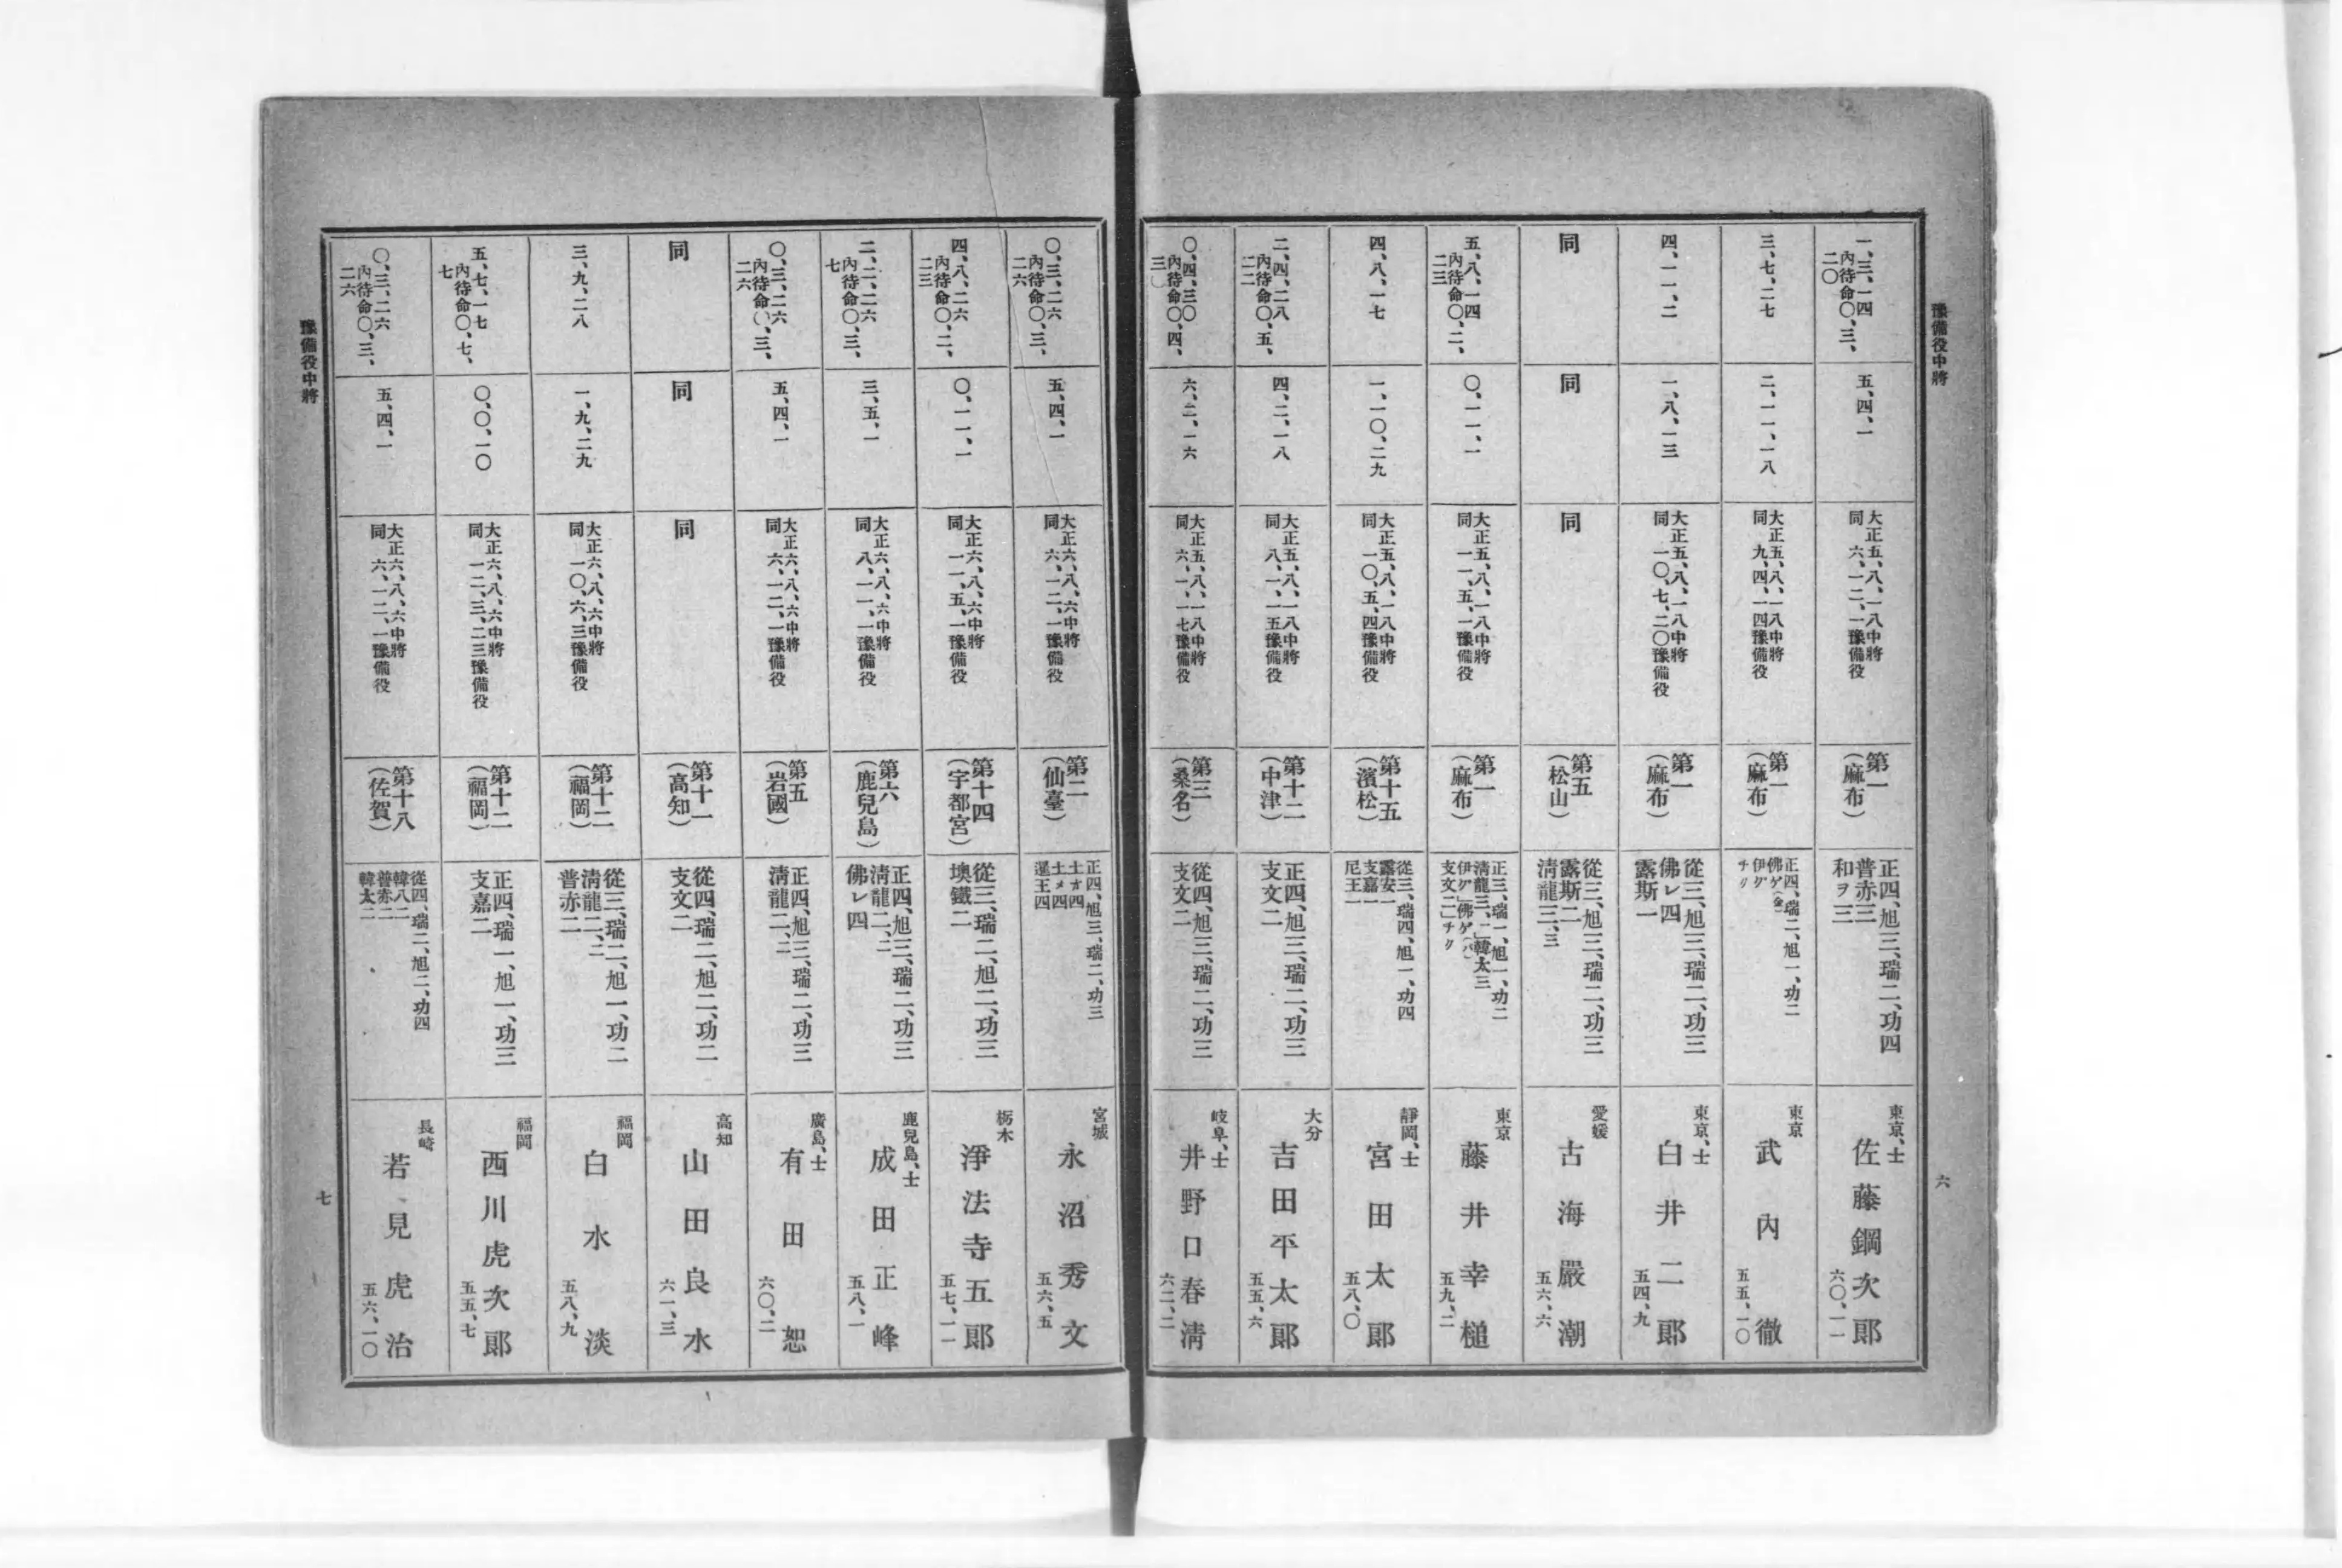 豫備役中將
六
一、三、一四
內待命〇、三、
二〇
五、四、一
大正五、八、一八中將
同 六、一二、一豫備役
第一
(麻布)
正四、旭三、瑞二、功四
普赤三
和ヲ三
東京、士
佐藤鋼次郎
六〇、一一
三、七、二七
二、一一、一八
大正五、八、一八中將
同 九、四、一四豫備役
第一
(麻布)
正四、瑞二、旭一、功二
佛ゲ(金)
伊グ
チク
東京
武內徹
五五、一〇
四、一一、二
一、八、一三
大正五、八、一八中將
同 一〇、七、二〇豫備役
第一
(麻布)
從三、旭三、瑞二、功三
佛レ四
露斯一
東京、士
白井二郎
五四、九
同
同
同
第五
(松山)
從三、旭三、瑞二、功三
露斯二
淸龍三、三
愛媛
古海嚴潮
五六、六
五、八、一四
內待命〇、二、
二三
〇、一一、一
大正五、八、一八中將
同 一一、五、一豫備役
第一
(麻布)
正三、瑞一、旭一、功二
淸龍三、二「韓太三
支文二」チク
東京
藤井幸槌
五九、二
四、八、一七
一、一〇、二九
大正五、八、一八中將
同 一〇、五、四豫備役
第十五
(濱松)
從三、瑞四、旭一、功四
露安一
支嘉一
尼王一
靜岡、士
宮田太郎
五八、〇
二、四、二八
內待命〇、五、
二二
四、二、一八
大正五、八、一八中將
同 八、一、一五豫備役
第十二
(中津)
正四、旭三、瑞二、功三
支文二
大分
吉田平太郎
五五、六
〇、四、三〇
內待命〇、四、
三〇
六、二、一六
大正五、八、一八中將
同 六、一、一七豫備役
第三
(桑名)
從四、旭三、瑞二、功三
支文二
岐阜、士
井野口春淸
六二、二
〇、三、二六
內待命〇、三、
二六
五、四、一
大正六、八、六中將
同 六、一二、一豫備役
第二
(仙臺)
正四、旭三、瑞二、功三
土オ四
土メ四
暹王四
宮城
永沼秀文
五六、五
四、八、二六
內待命〇、二、
二三
〇、一一、一
大正六、八、六中將
同 一一、五、一豫備役
第十四
(宇都宮)
從三、瑞二、旭二、功三
墺鐵二
栃木
淨法寺五郎
五七、一一
二、二、二六
內待命〇、三、
七
三、五、一
大正六、八、六中將
同 八、一一、一豫備役
第六
(鹿兒島)
正四、旭三、瑞二、功三
淸龍二、二
佛レ四
鹿兒島、士
成田正峰
五八、一
〇、三、二六
內待命〇、三、
二六
五、四、一
大正六、八、六中將
同 六、一二、一豫備役
第五
(岩國)
正四、旭三、瑞二、功三
淸龍二、二
廣島、士
有田恕
六〇、二
同
同
同
第十一
(高知)
從四、瑞二、旭二、功二
支文二
高知
山田良水
六一、三
三、九、二八
一、九、二九
大正六、八、六中將
同 一〇、六、三豫備役
第十二
(福岡)
從三、瑞二、旭一、功二
淸龍二、二
普赤二
福岡
白水淡
五八、九
五、七、一七
內待命〇、七、
七
〇、〇、一〇
大正六、八、六中將
同 一二、三、二三豫備役
第十二
(福岡)
正四、瑞一、旭一、功三
支嘉二
福岡
西川虎次郎
五五、七
〇、三、二六
內待命〇、三、
二六
五、四、一
大正六、八、六中將
同 六、一二、一豫備役
第十八
(佐賀)
從四、瑞二、旭二、功四
韓八二
普赤二
韓太二
長崎
若見虎治
五六、一〇
豫備役中將
七